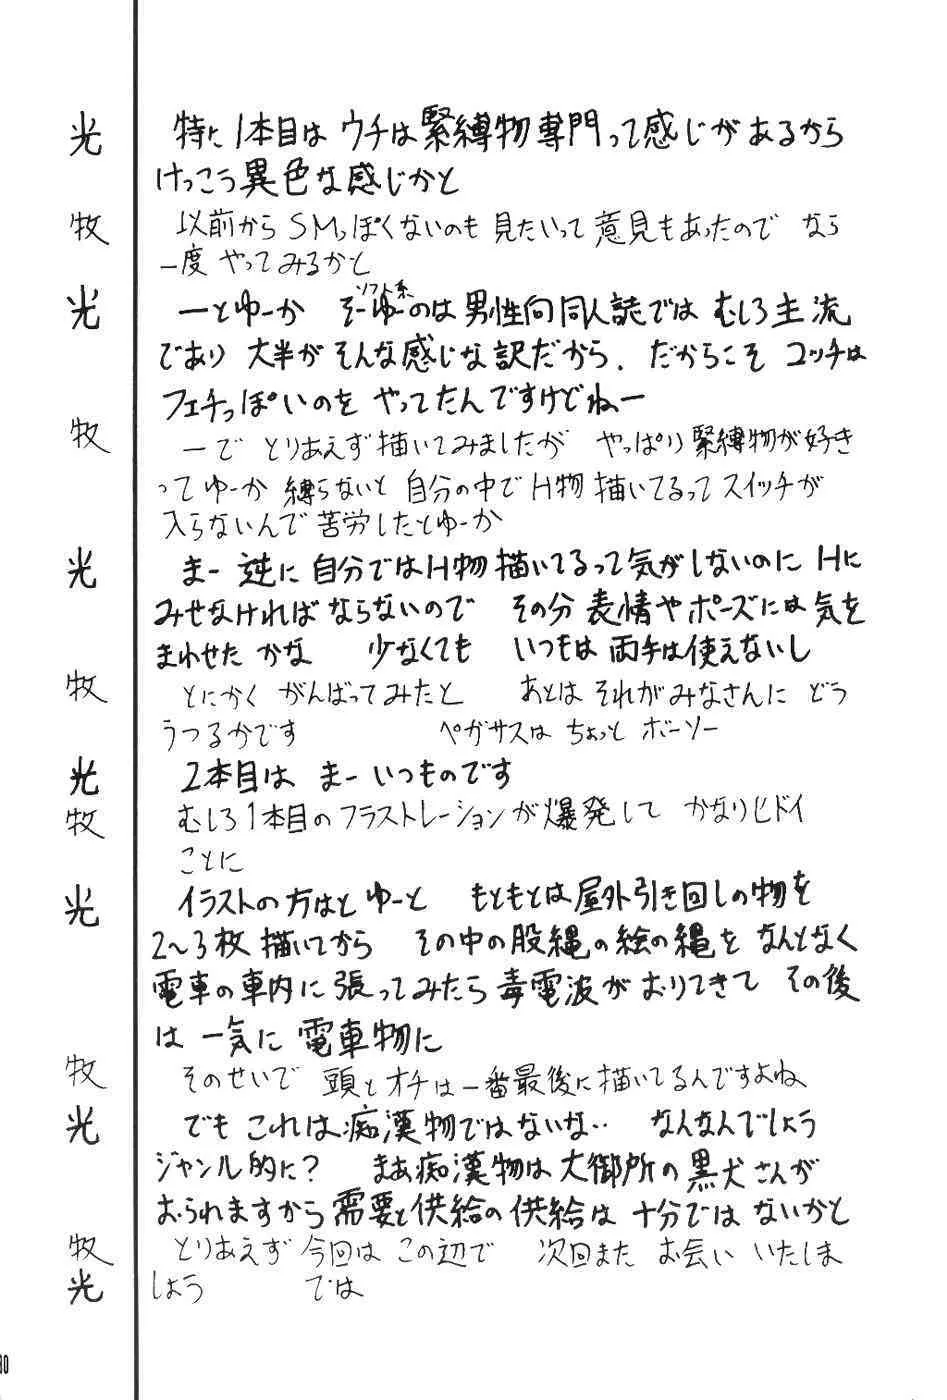 光 特に1本目は ウチは緊縛物専門って感じがあるから
けっこう異色な感じかと
牧 以前からSMっぽくないのも見たいって意見もあったので なら
一度やってみるかと
ソフト系
光 ーとゆーか そーゆーのは男性向同人誌では むしろ主流
であり 大半がそんな感じな訳だから. だからこそ コッチは
フェチっぽいのを やってたんですけどねー
牧 ーで とりあえず描いてみましたが やっぱり緊縛物が好き
ってゆーか 縛らないと 自分の中でH物描いてるってスイッチが
入らないんで苦労したとゆーか
光 まー 逆に自分ではH物描いてるって気がしないのに Hに
みせなければならないので その分表情やポーズには気を
まわせた かな 少なくても いつもは両手は使えないし
牧 とにかく がんばってみたと あとは それがみなさんに どう
うつるかです ペガサスは ちょっと ボーソー
光 2本目は まー いつものです
牧 むしろ1本目のフラストレーションが爆発して かなりヒドイ
ことに
光 イラストの方はとゆーと もともとは屋外引き回しの物を
2〜3枚描いてから その中の股縄の絵の縄を なんとなく
電車の車内に張ってみたら毒電波がおりてきて その後
は 一気に 電車物に
牧 そのせいで 頭とオチは一番最後に描いてるんですよね
光 でも これは痴漢物ではないな‥ なんなんでしょう
ジャンル的に? まあ痴漢物は大御所の黒犬さんが
おられますから需要と供給の供給は十分ではないかと
牧 とりあえず今回は この辺で 次回また お会い いたしま
光 しょう では
80